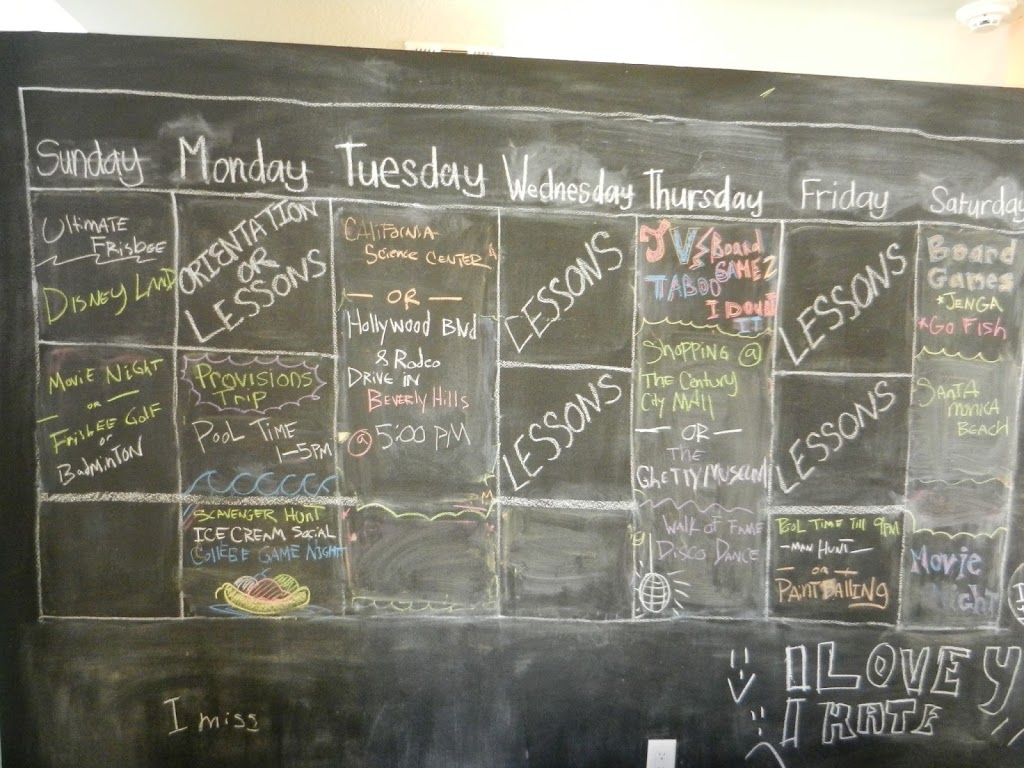 Sunday Monday Tuesday Wednesday Thursday Friday Saturday
Ultimate
Frisbee
Disney Land
Movie Night
or
Frisbee Golf
or
Badminton
ORIENTATION
OR
LESSONS
Provisions
Trip
Pool Time
1-5PM
Scavenger Hunt
ICE CREAM Social
College Game Night
California
Science Center
OR
Hollywood Blvd
& Rodeo
Drive in
Beverly Hills
@ 5:00 PM
LESSONS
LESSONS
TV
Board
GAMEZ
TABOO
I Doubt
IT
Shopping @
The Century
City Mall
OR
THE
Ghetty Museum
Walk of Fame
Disco Dance
LESSONS
LESSONS
Pool Time Till 9PM
-Man Hunt-
OR
Paintballing
Board
Games
*JENGA
*Go Fish
Santa
Monica
Beach
Movie
Night
I miss
I LOVE Y
I HATE